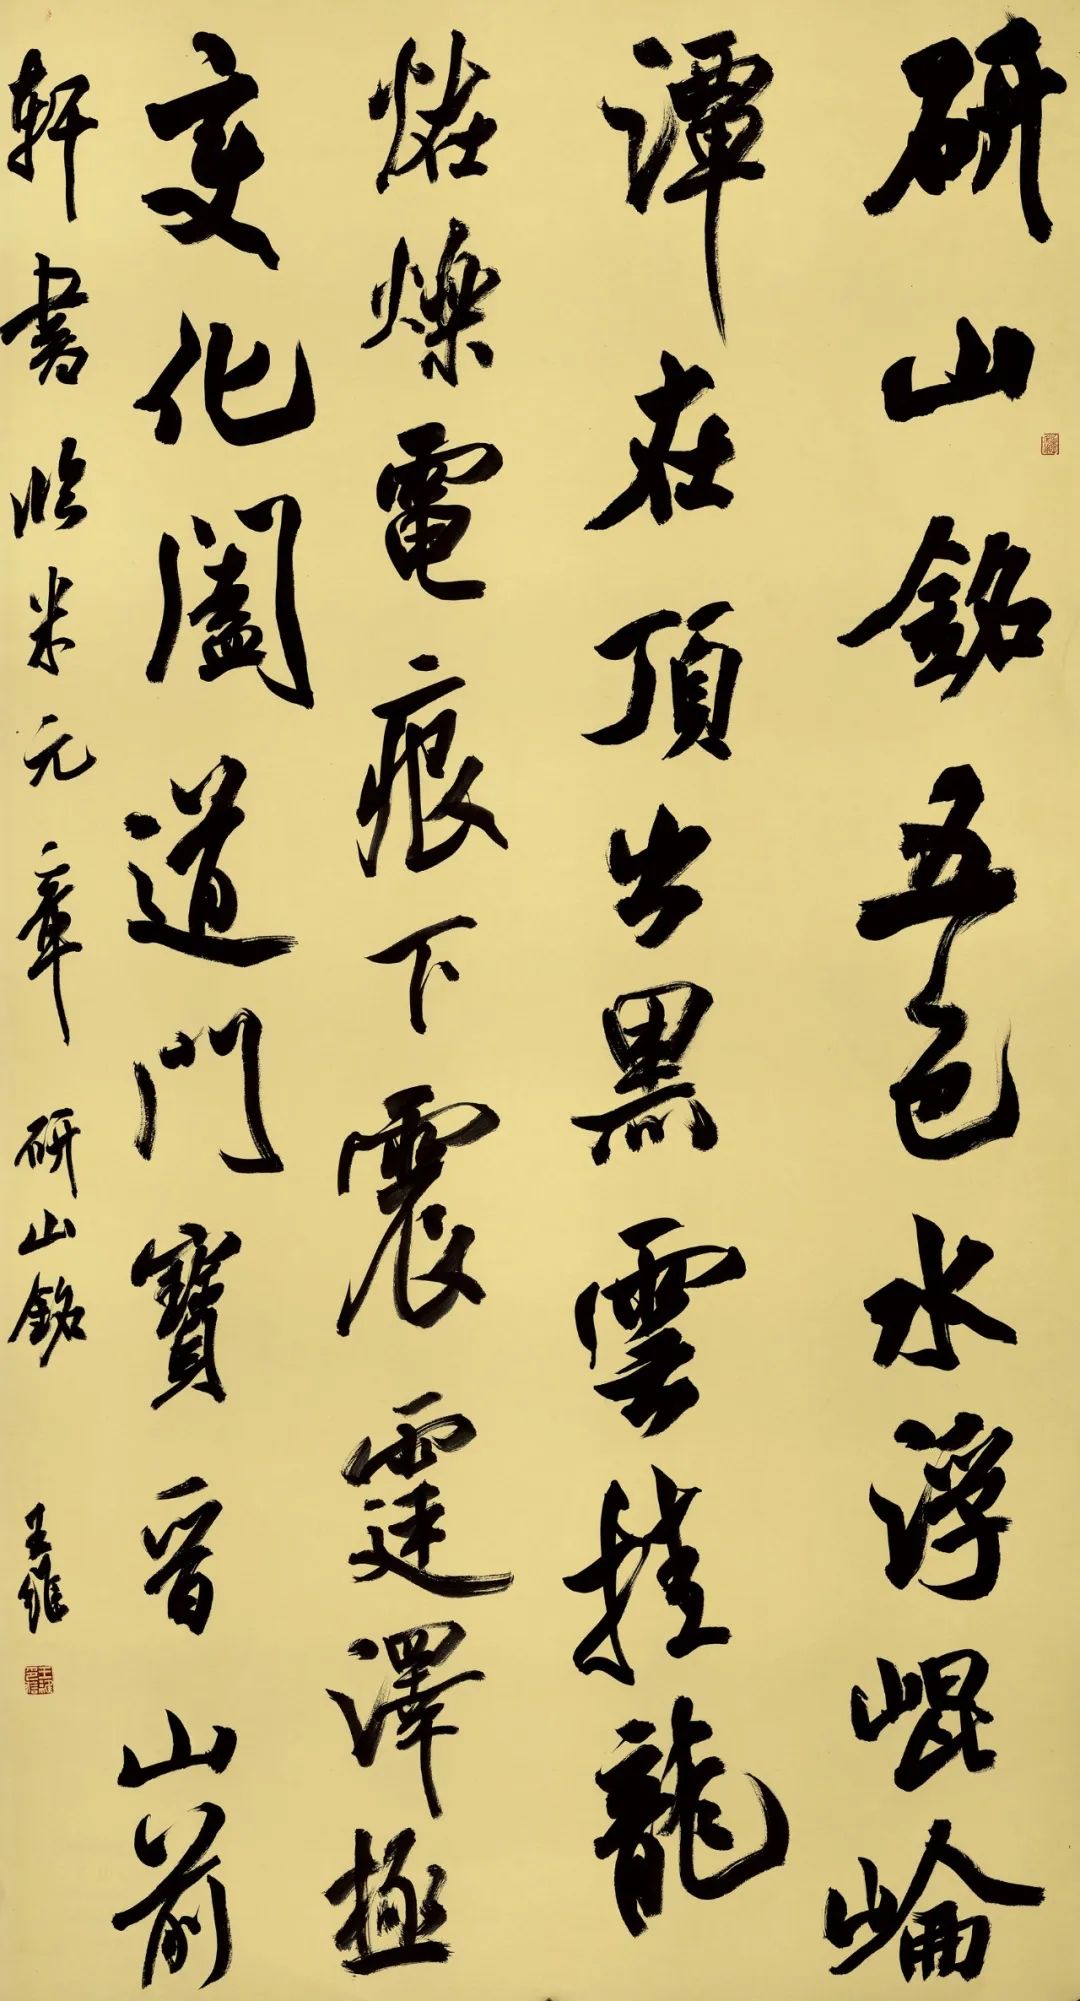 研山銘五色水浮崐崘
潭在頂出黑雲挂龍
爍電痕下震霆澤極
变化闔道門寶晉山前
軒書臨米元章研山銘王維